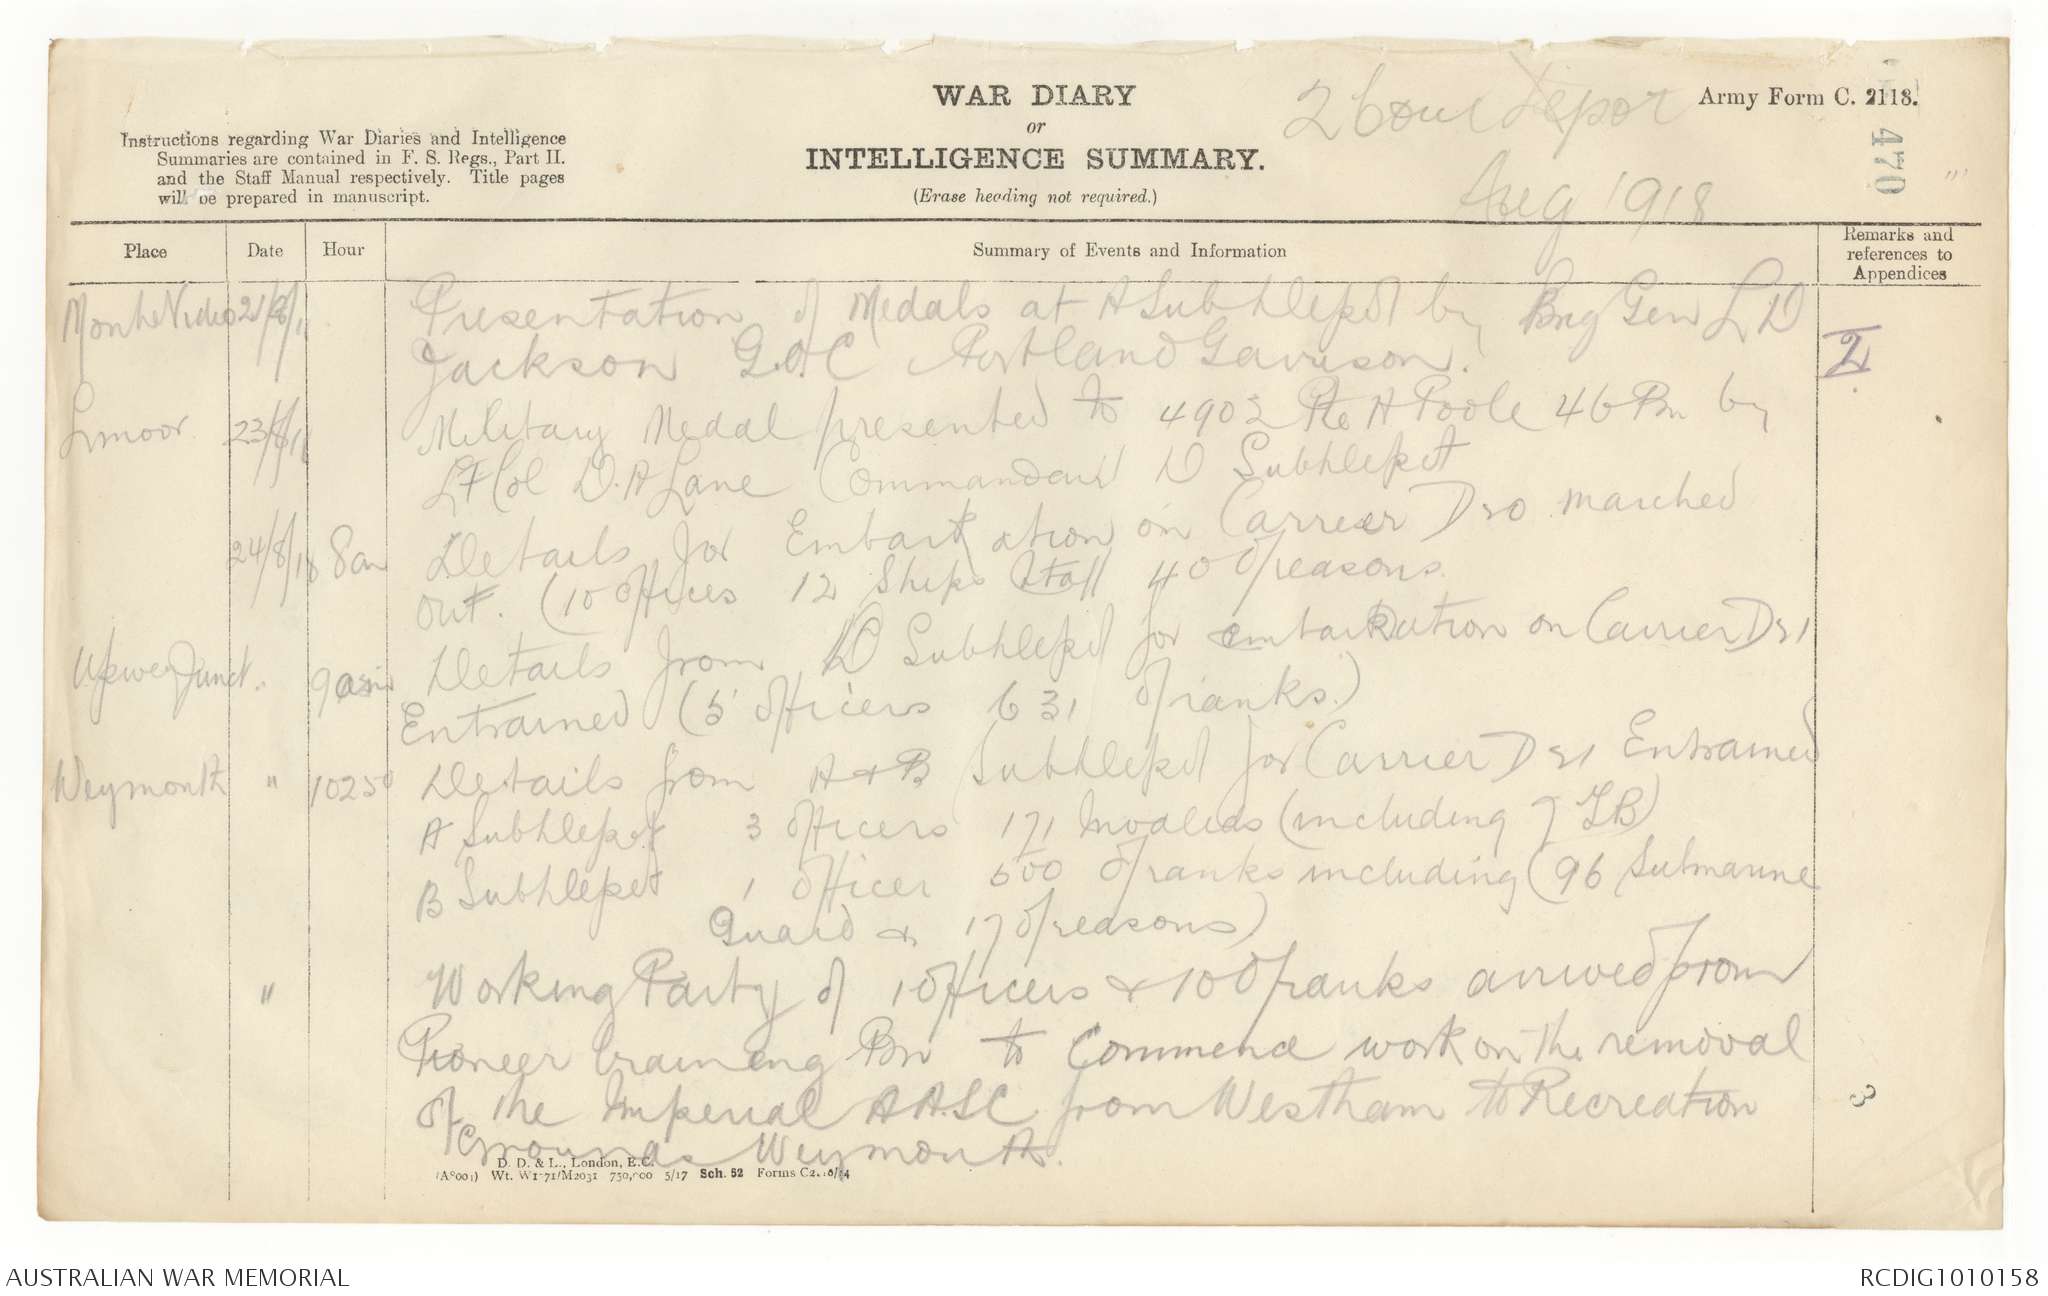 WAR DIARY
or
INTELLIGENCE SUMMARY.
(Erase heading not required.)
Instructions regarding War Diaries and Intelligence
Summaries are contained in F. S. Regs., Part II.
and the Staff Manual respectively. Title pages
will be prepared in manuscript.
2 Com Depot
Aug 1918
Army Form C. 2118.
470
Place Date Hour Summary of Events and Information Remarks and references to Appendices
Monte Video 21/8/1 Presentation of Medals at A Subdepot by Brig Gen L D
Jackson G.O.C Portland Garrison.
2
Lmoor 23/8/18 Military Medal presented to 4902 Pte A Poole 46 Bn by
Lt Col D.A Lane Commandant D Subdepot
24/8/18 8am Details for Embarkation on Carrier D 20 marched
out. (10 Offices 12 Ships Staff 40 O/reasons.
Upwey Junct. 9am Details from D Subdepot for embarkation on Carrier D 21
Entrained (5 Officers 631 O/ranks.)
Weymouth " 1025 Details from A & B Subdepot for Carrier D 21 Entrained
A Subdepot 3 Officers 171 Invalids (including 7 TB)
B Subdepot 1 Officer 500 O/ranks including (96 Submarine
Guard & 17 O/reasons)
" Working Party of 1 Officers & 100 O/ranks arrived from
Pioneer training Bn to Commence work on the removal
of the Imperial A.A.S.C from Westham to Recreation
Grounds Weymouth.
3
D. D. & L., London, E.C.
Wt. W1771/M2031 750,000 5/17 Sch. 52 Forms C2118/14
AUSTRALIAN WAR MEMORIAL
RCDIG1010158